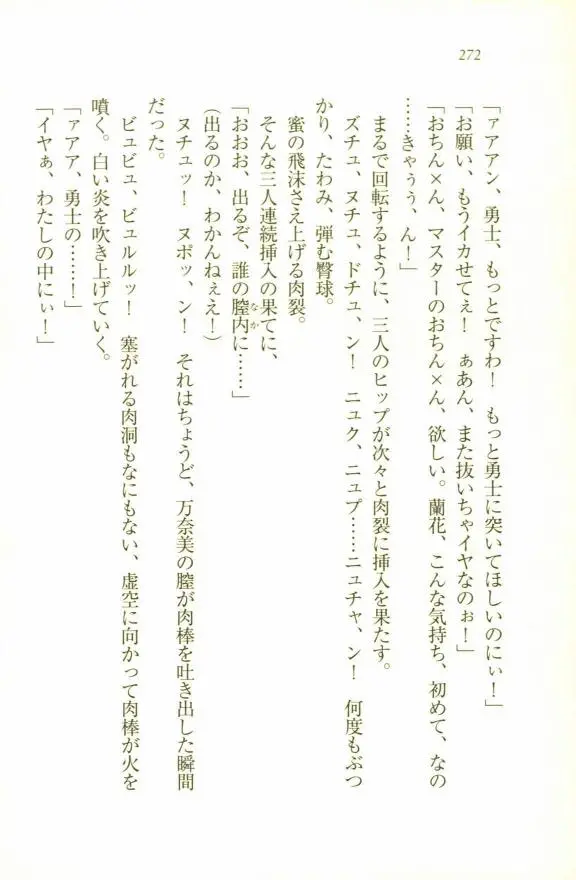 272
「ァアアン、勇士、もっとですわ！　もっと勇士に突いてほしいのにぃ！」
「お願い、もうイカせてぇ！　ぁあん、また抜いちゃイヤなのぉ！」
「おちん×ん、マスターのおちん×ん、欲しい。蘭花、こんな気持ち、初めて、なの
……きゃぅぅ、ん！」
まるで回転するように、三人のヒップが次々と肉裂に挿入を果たす。
ズチュ、ヌチュ、ドチュ、ン！　ニュク、ニュプ……ニュチャ、ン！　何度もぶつ
かり、たわみ、弾む臀球。
蜜の飛沫さえ上げる肉裂。
そんな三人連続挿入の果てに、
「おおお、出るぞ、誰の膣内に……」
なか
（出るのか、わかんねぇえ！）
ヌチュッ！　ヌポッ、ン！　それはちょうど、万奈美の膣が肉棒を吐き出した瞬間
だった。
ビュビュ、ビュルルッ！　塞がれる肉洞もなにもない、虚空に向かって肉棒が火を
噴く。白い炎を吹き上げていく。
「ァアア、勇士の……！」
「イヤぁ、わたしの中にぃ！」